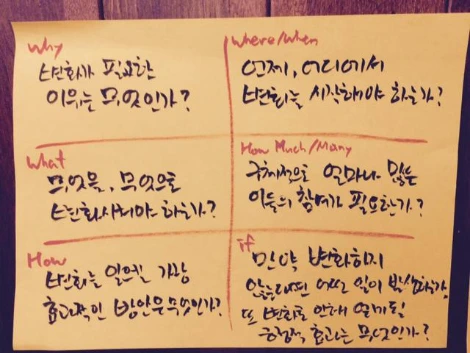 Why
변화가 필요한
이유는 무엇인가?
Where/When
언제, 어디에서
변화를 시작해야 하는가?
What
무엇을, 무엇으로
변화시켜야 하는가?
How Much/Many
구체적으로 얼마나 많은
이들의 참여가 필요한가?
How
변화를 일으킬 가장
효과적인 방안은 무엇인가?
if
만약 변화하지
않는다면 어떤 일이 발생하는가,
또 변화로 인해 얻게 될
긍정적 효과는 무엇인가?